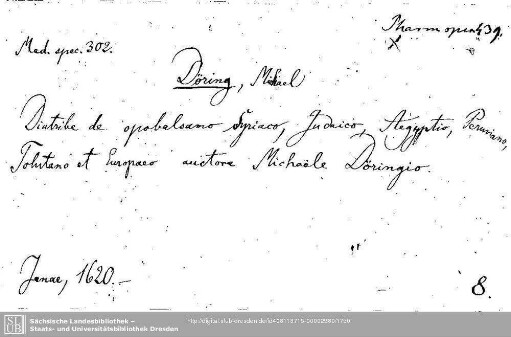 Pharm. spec. 439.
X
Mad. spec. 302.
Döring, Michael
Diatribe de opobalsamo Syriaco, Judaico, Aegyptio, Peruviano,
Tolutano et Europaeo auctore Michaële Döringio.
Janae, 1620.–
8.
SLUB Sächsische Landesbibliothek –
Staats- und Universitätsbibliothek Dresden